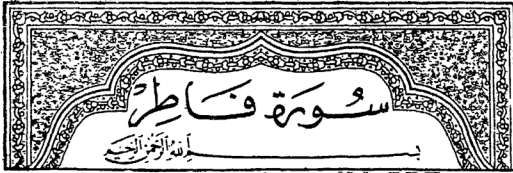 سُورَة فَاطِرْ
بِسْمِ اللَّهِ الرَّحْمَٰنِ الرَّحِيمِ